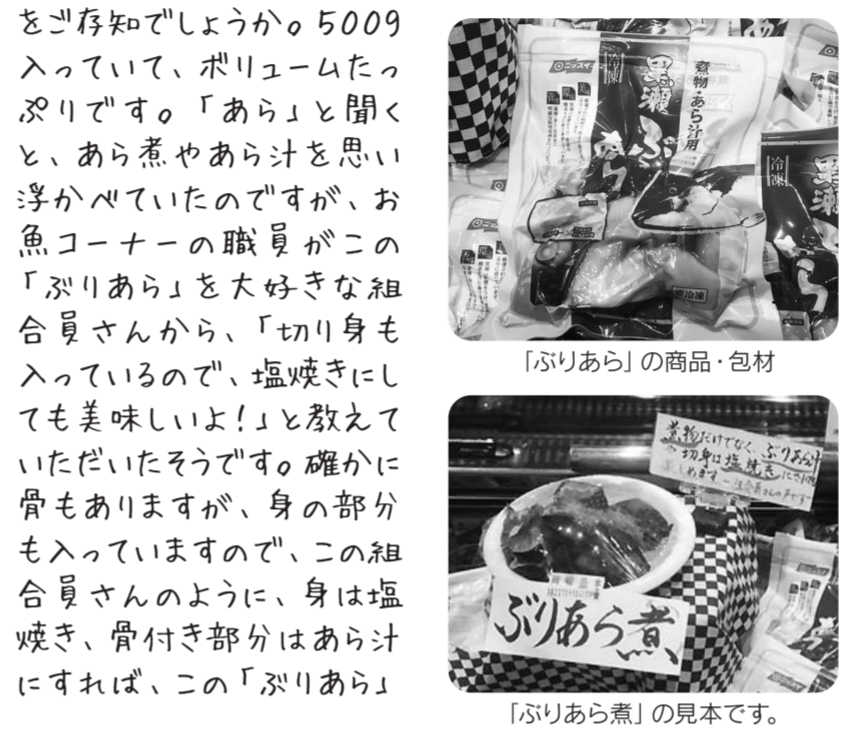 をご存知でしょうか。500g
入っていて、ボリュームたっ
ぷりです。「あら」と聞く
と、あら煮やあら汁を思い
浮かべていたのですが、お
魚コーナーの職員がこの
「ぶりあら」を大好きな組
合員さんから、「切り身も
入っているので、塩焼きにし
ても美味しいよ！」と教えて
いただいたそうです。確かに
骨もありますが、身の部分
も入っていますので、この組
合員さんのように、身は塩
焼き、骨付き部分はあら汁
にすれば、この「ぶりあら」
ニッスイ
冷凍
黒瀬ぶりあら
煮物・あら汁用
要冷凍
冷凍
黒瀬
「ぶりあら」の商品・包材
煮物だけでなく、ぶりあら汁
や切身は塩焼きに
楽しめます
ぶりあら煮
「ぶりあら煮」の見本です。